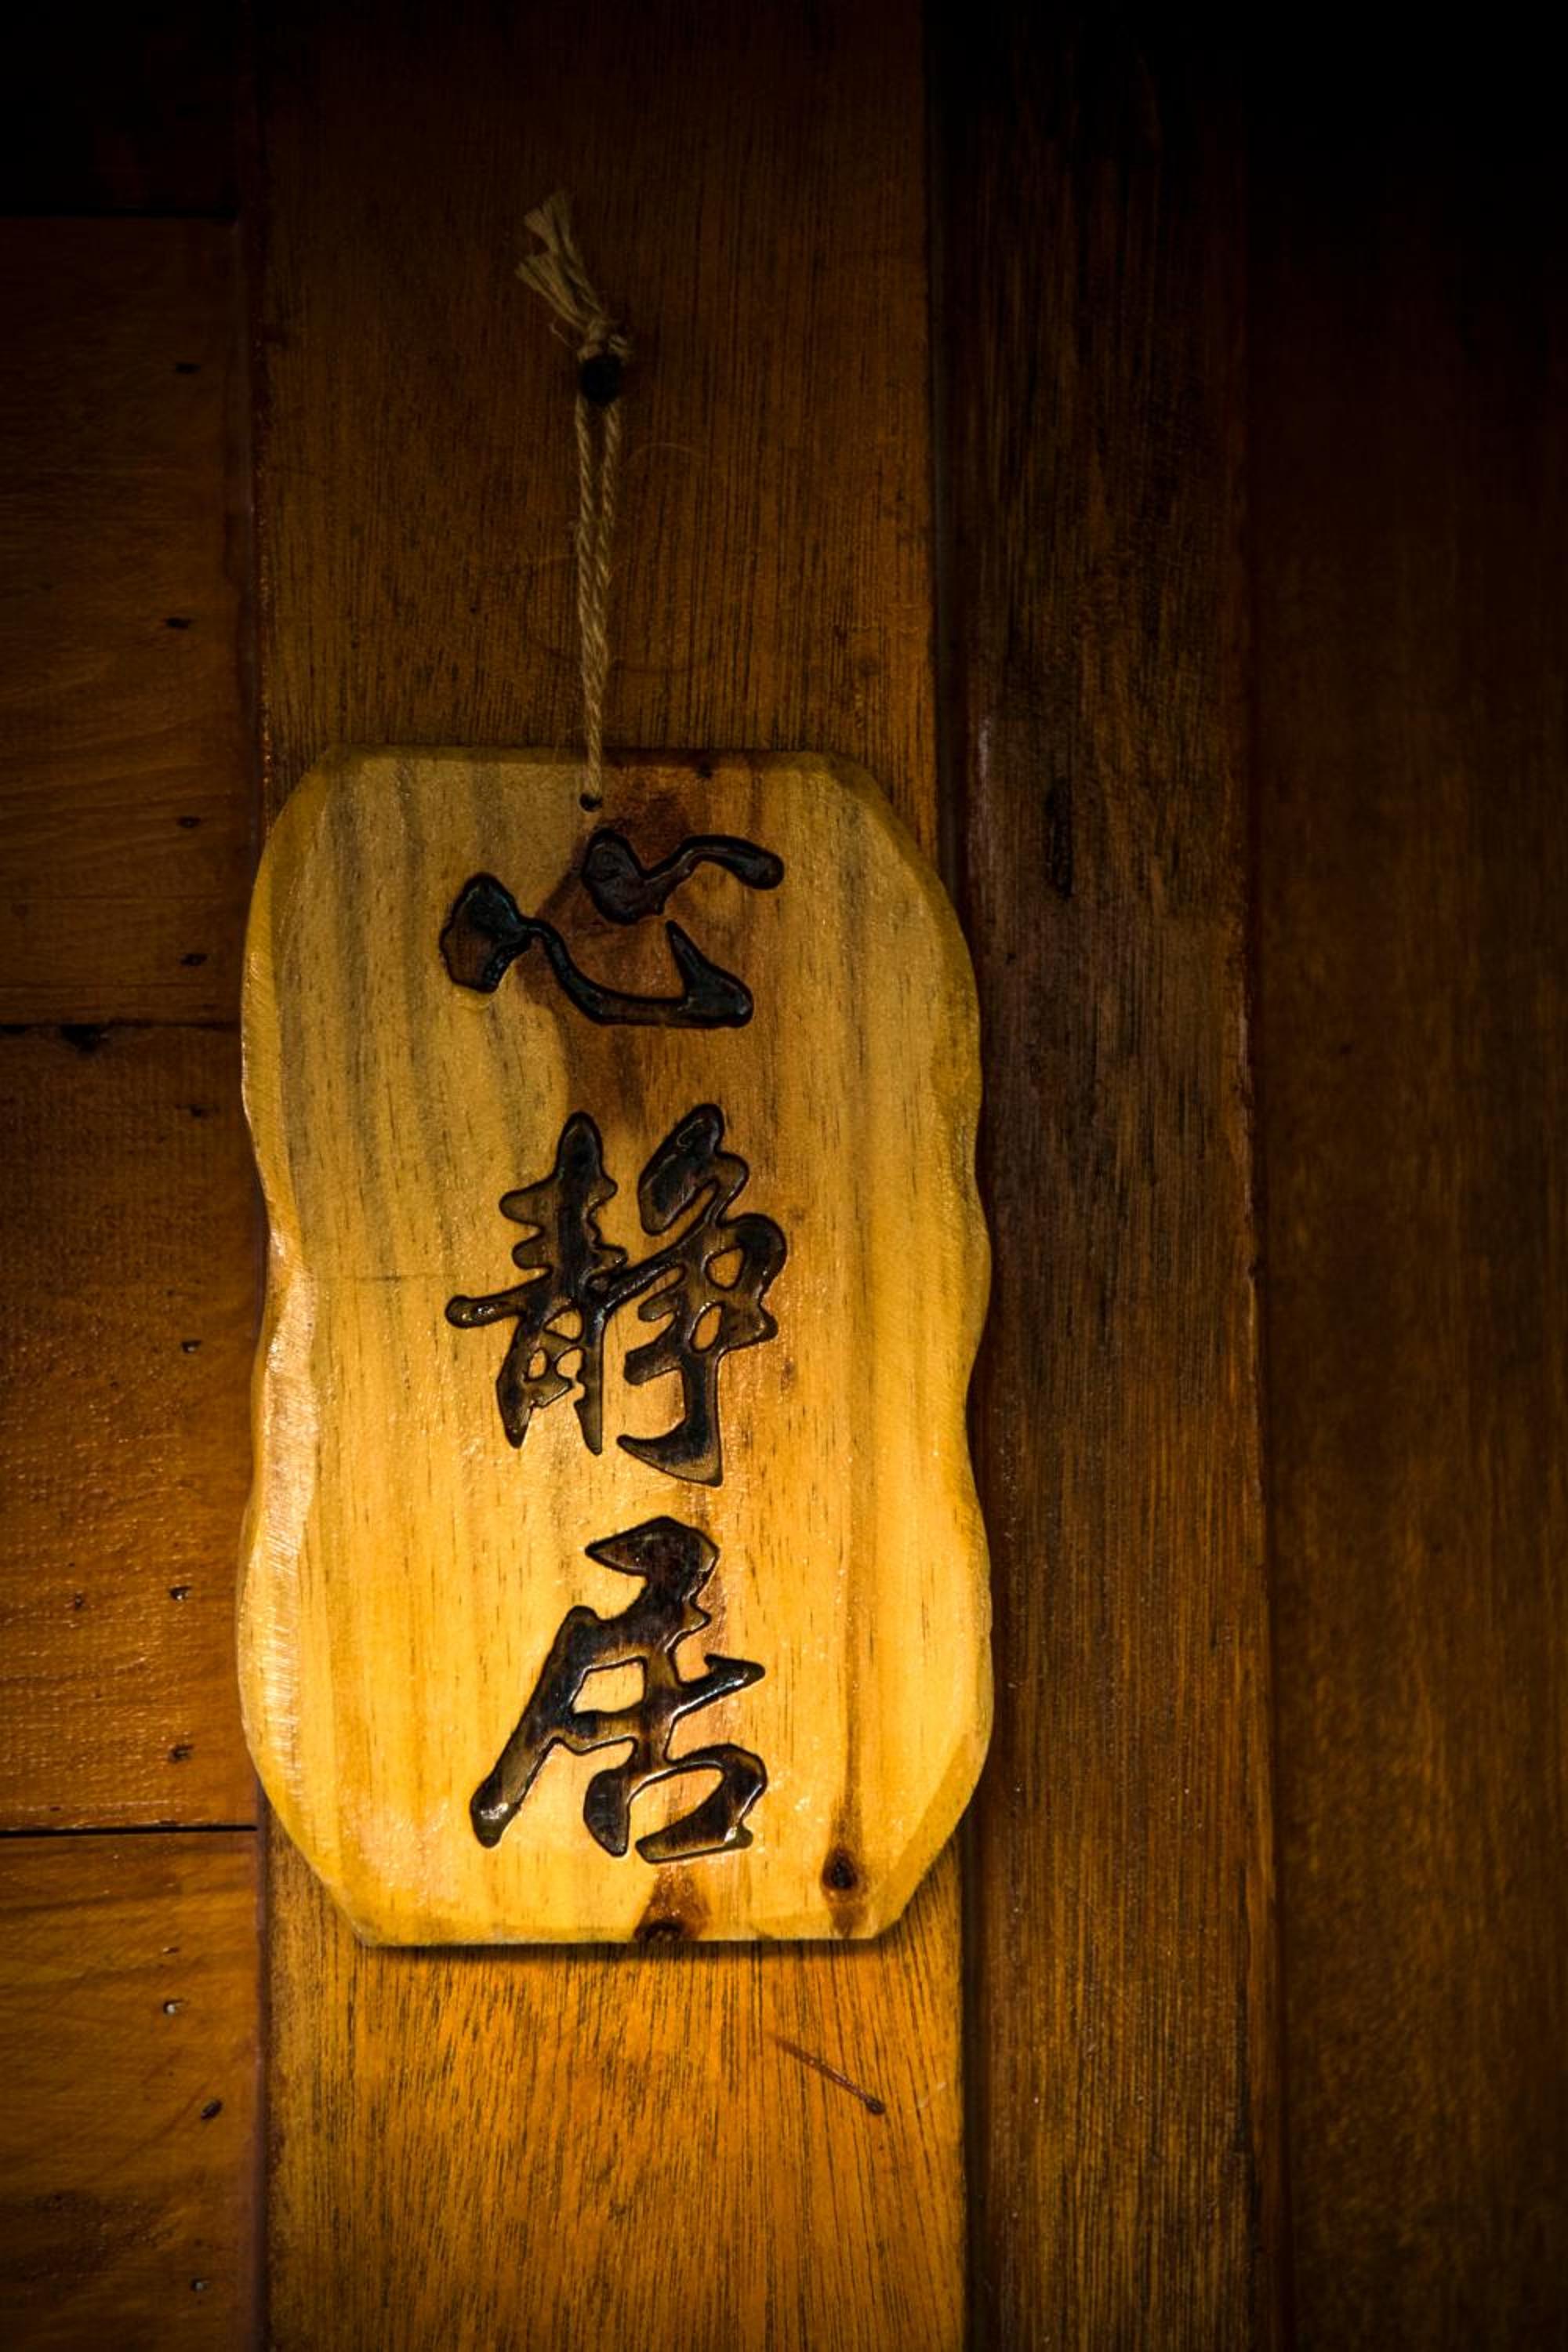 心静居